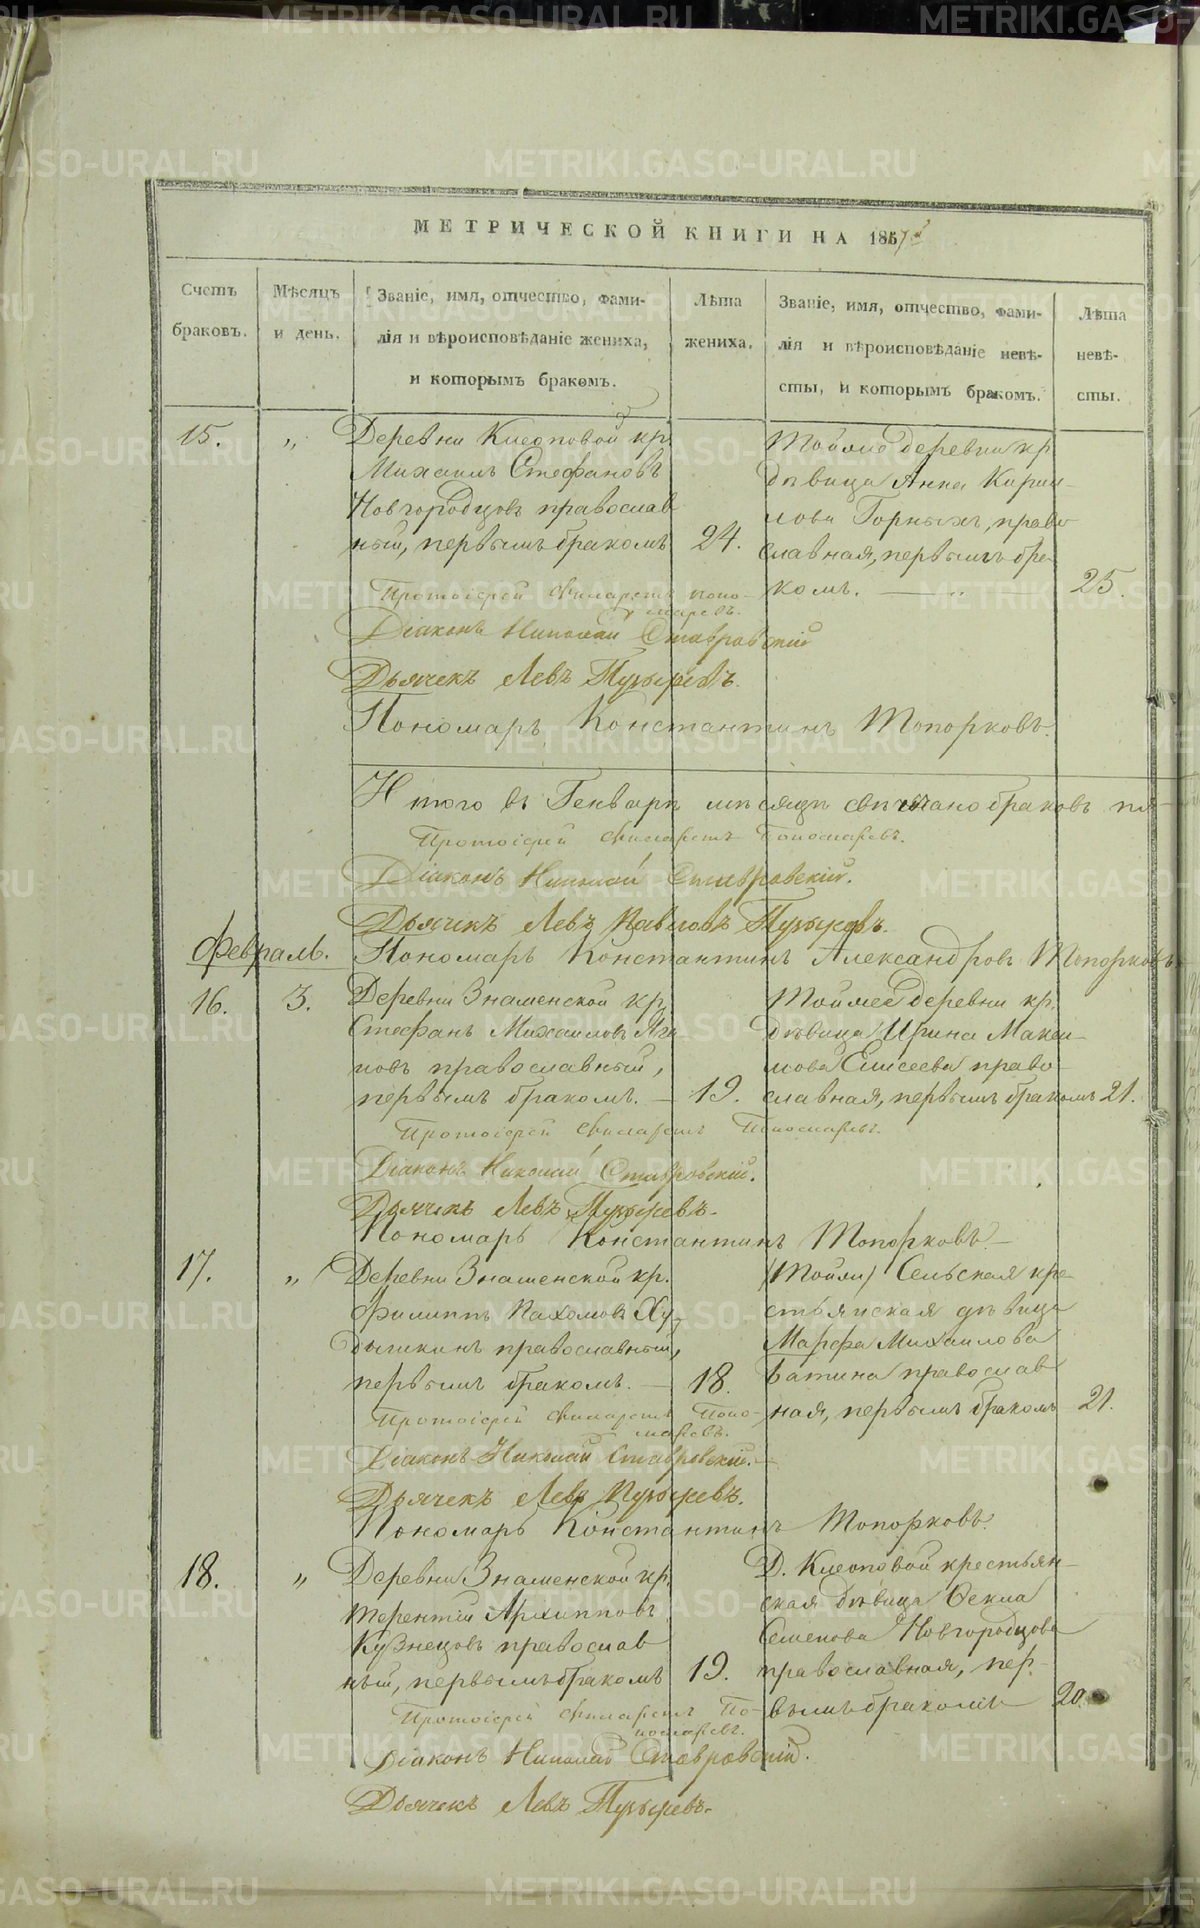 МЕТРИЧЕСКОЙ КНИГИ НА 1857
Счетъ браковъ.
Мѣсяцъ и день.
Званіе, имя, отчество, фами-
лія и вѣроисповѣданіе жениха,
и которымъ бракомъ.
Лѣта жениха.
Званіе, имя, отчество, фами-
лія и вѣроисповѣданіе невѣ-
сты, и которымъ бракомъ.
Лѣта невѣ-
сты.
15.
„
Деревни Клеоповой кр.
Михаилъ Стефановъ
Новгородцовъ православ
ный, первымъ бракомъ
24.
Тойме деревни кр
дѣвица Анна Кирил-
лова Горныхъ, право
славная, первымъ бра-
комъ.
25.
Протоіерей Филаретъ Поно-
маревъ.
Діаконъ Николай Ставровскій
Дьячекъ Левъ Пузыревъ.
Пономарь Константинъ Топорковъ.
Итого въ Генварѣ мѣсяцѣ свѣнчано браковъ
Протоіерей Филаретъ Пономаревъ.
Діаконъ Николай Ставровскій.
Дьячекъ Левъ Павловъ Пузыревъ.
Пономарь Константинъ Александровъ Топорковъ
Февраль.
16.
3.
Деревни Знаменской кр.
Стефанъ Михаиловъ
православный,
первымъ бракомъ.
19.
деревни кр.
дѣвица Ирина Макси-
мова Елисеева право-
славная, первымъ бракомъ
21.
Протоіерей Филаретъ Пономаревъ.
Діаконъ Николай Ставровскій.
Дьячекъ Левъ Пузыревъ.
Пономарь Константинъ Топорковъ.
17.
„
Деревни Знаменской кр.
Филиппъ Пахомовъ Ху-
дышкинъ православный,
первымъ бракомъ.
18.
Сельская кре-
стьянская дѣвица
Марфа Михаилова
Батина православ
ная, первымъ бракомъ
21.
Протоіерей Филаретъ Поно-
маревъ.
Діаконъ Николай Ставровскій.
Дьячекъ Левъ Пузыревъ.
Пономарь Константинъ Топорковъ.
18.
„
Деревни Знаменской кр.
Терентій Архипповъ
Кузнецовъ православ
ный, первымъ бракомъ
19.
Д. Клеоповой крестьян-
ская дѣвица Ѳекла
Семенова Новгородцова
православная, пер-
вымъ бракомъ
20.
Протоіерей Филаретъ По-
номаревъ.
Діаконъ Николай Ставровскій.
Дьячекъ Левъ Пузыревъ.
METRIKI.GASO-URAL.RU